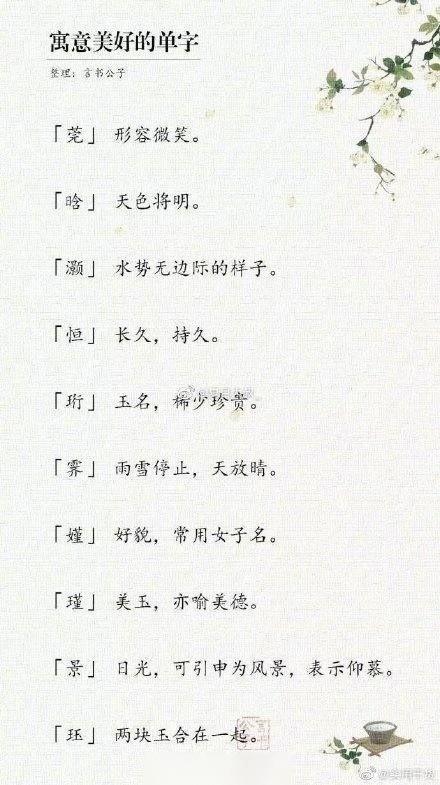 寓意美好的单字
整理：言书公子
「莞」 形容微笑。
「晗」 天色将明。
「灏」 水势无边际的样子。
「恒」 长久，持久。
「珩」 玉名，稀少珍贵。
「霁」 雨雪停止，天放晴。
「嫤」 好貌，常用女子名。
「瑾」 美玉，亦喻美德。
「景」 日光，可引申为风景，表示仰慕。
「珏」 两块玉合在一起。